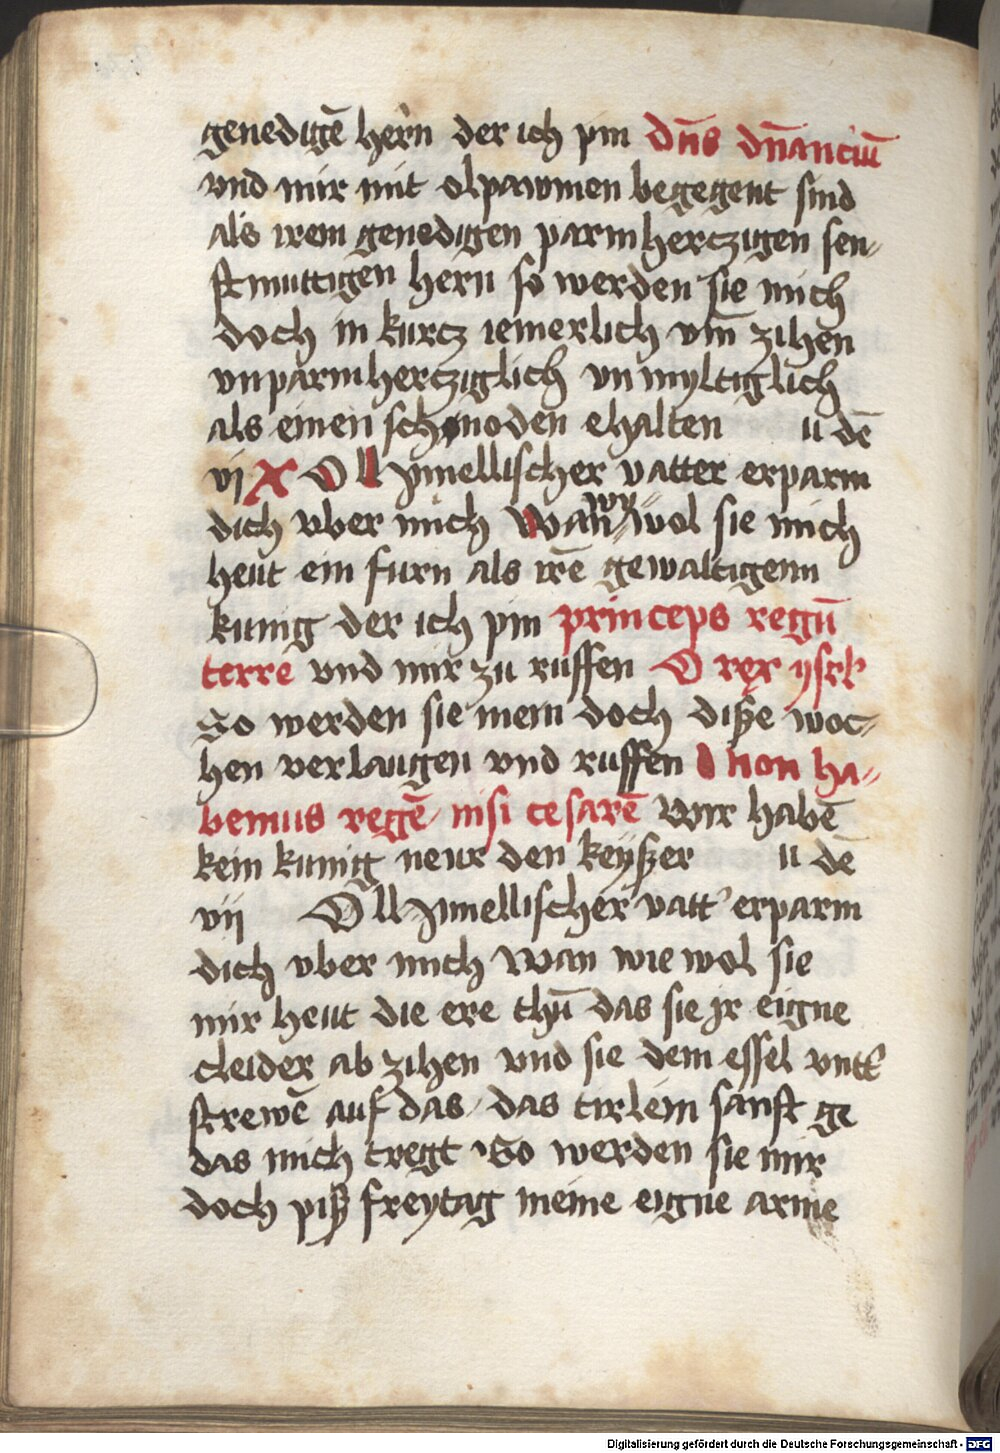 genedigē hern der ich pin dn̄s dn̄anciū
vnd mir mit olpawmen begegent sind
als irem genedigen parmherczigen sen-
ftmuttigen hern so werden sie mich
doch in kurcz iemerlich vm̄ zihen
vnparmhercziglich vn myltiglich
als einen schnoden ehalten ii dē
vj X O Himellischer vatter erparm
dich vber mich Wan wy wol sie mich
heut ein furn als irē gewaltigenn
kunig der ich pin princeps regū
terre vnd mir zu ruffen O rex ysrl
So werden sie mein doch diße woc-
hen verlaugen vnd ruffen non ha-
bemus regē nisi cesarē Wir habē
kein kunig neur den keyßer ii dē
vij O Himellischer vatt' erparm
dich vber mich Wan wie wol sie
mir heut die ere thū das sie jr eigne
cleider ab zihen vnd sie dem essel vntt'
strewē auf das das tirlein sanft ge
das mich tregt So werden sie mir
doch piß freytag meine eigne arme
Digitalisierung gefördert durch die Deutsche Forschungsgemeinschaft - DFG